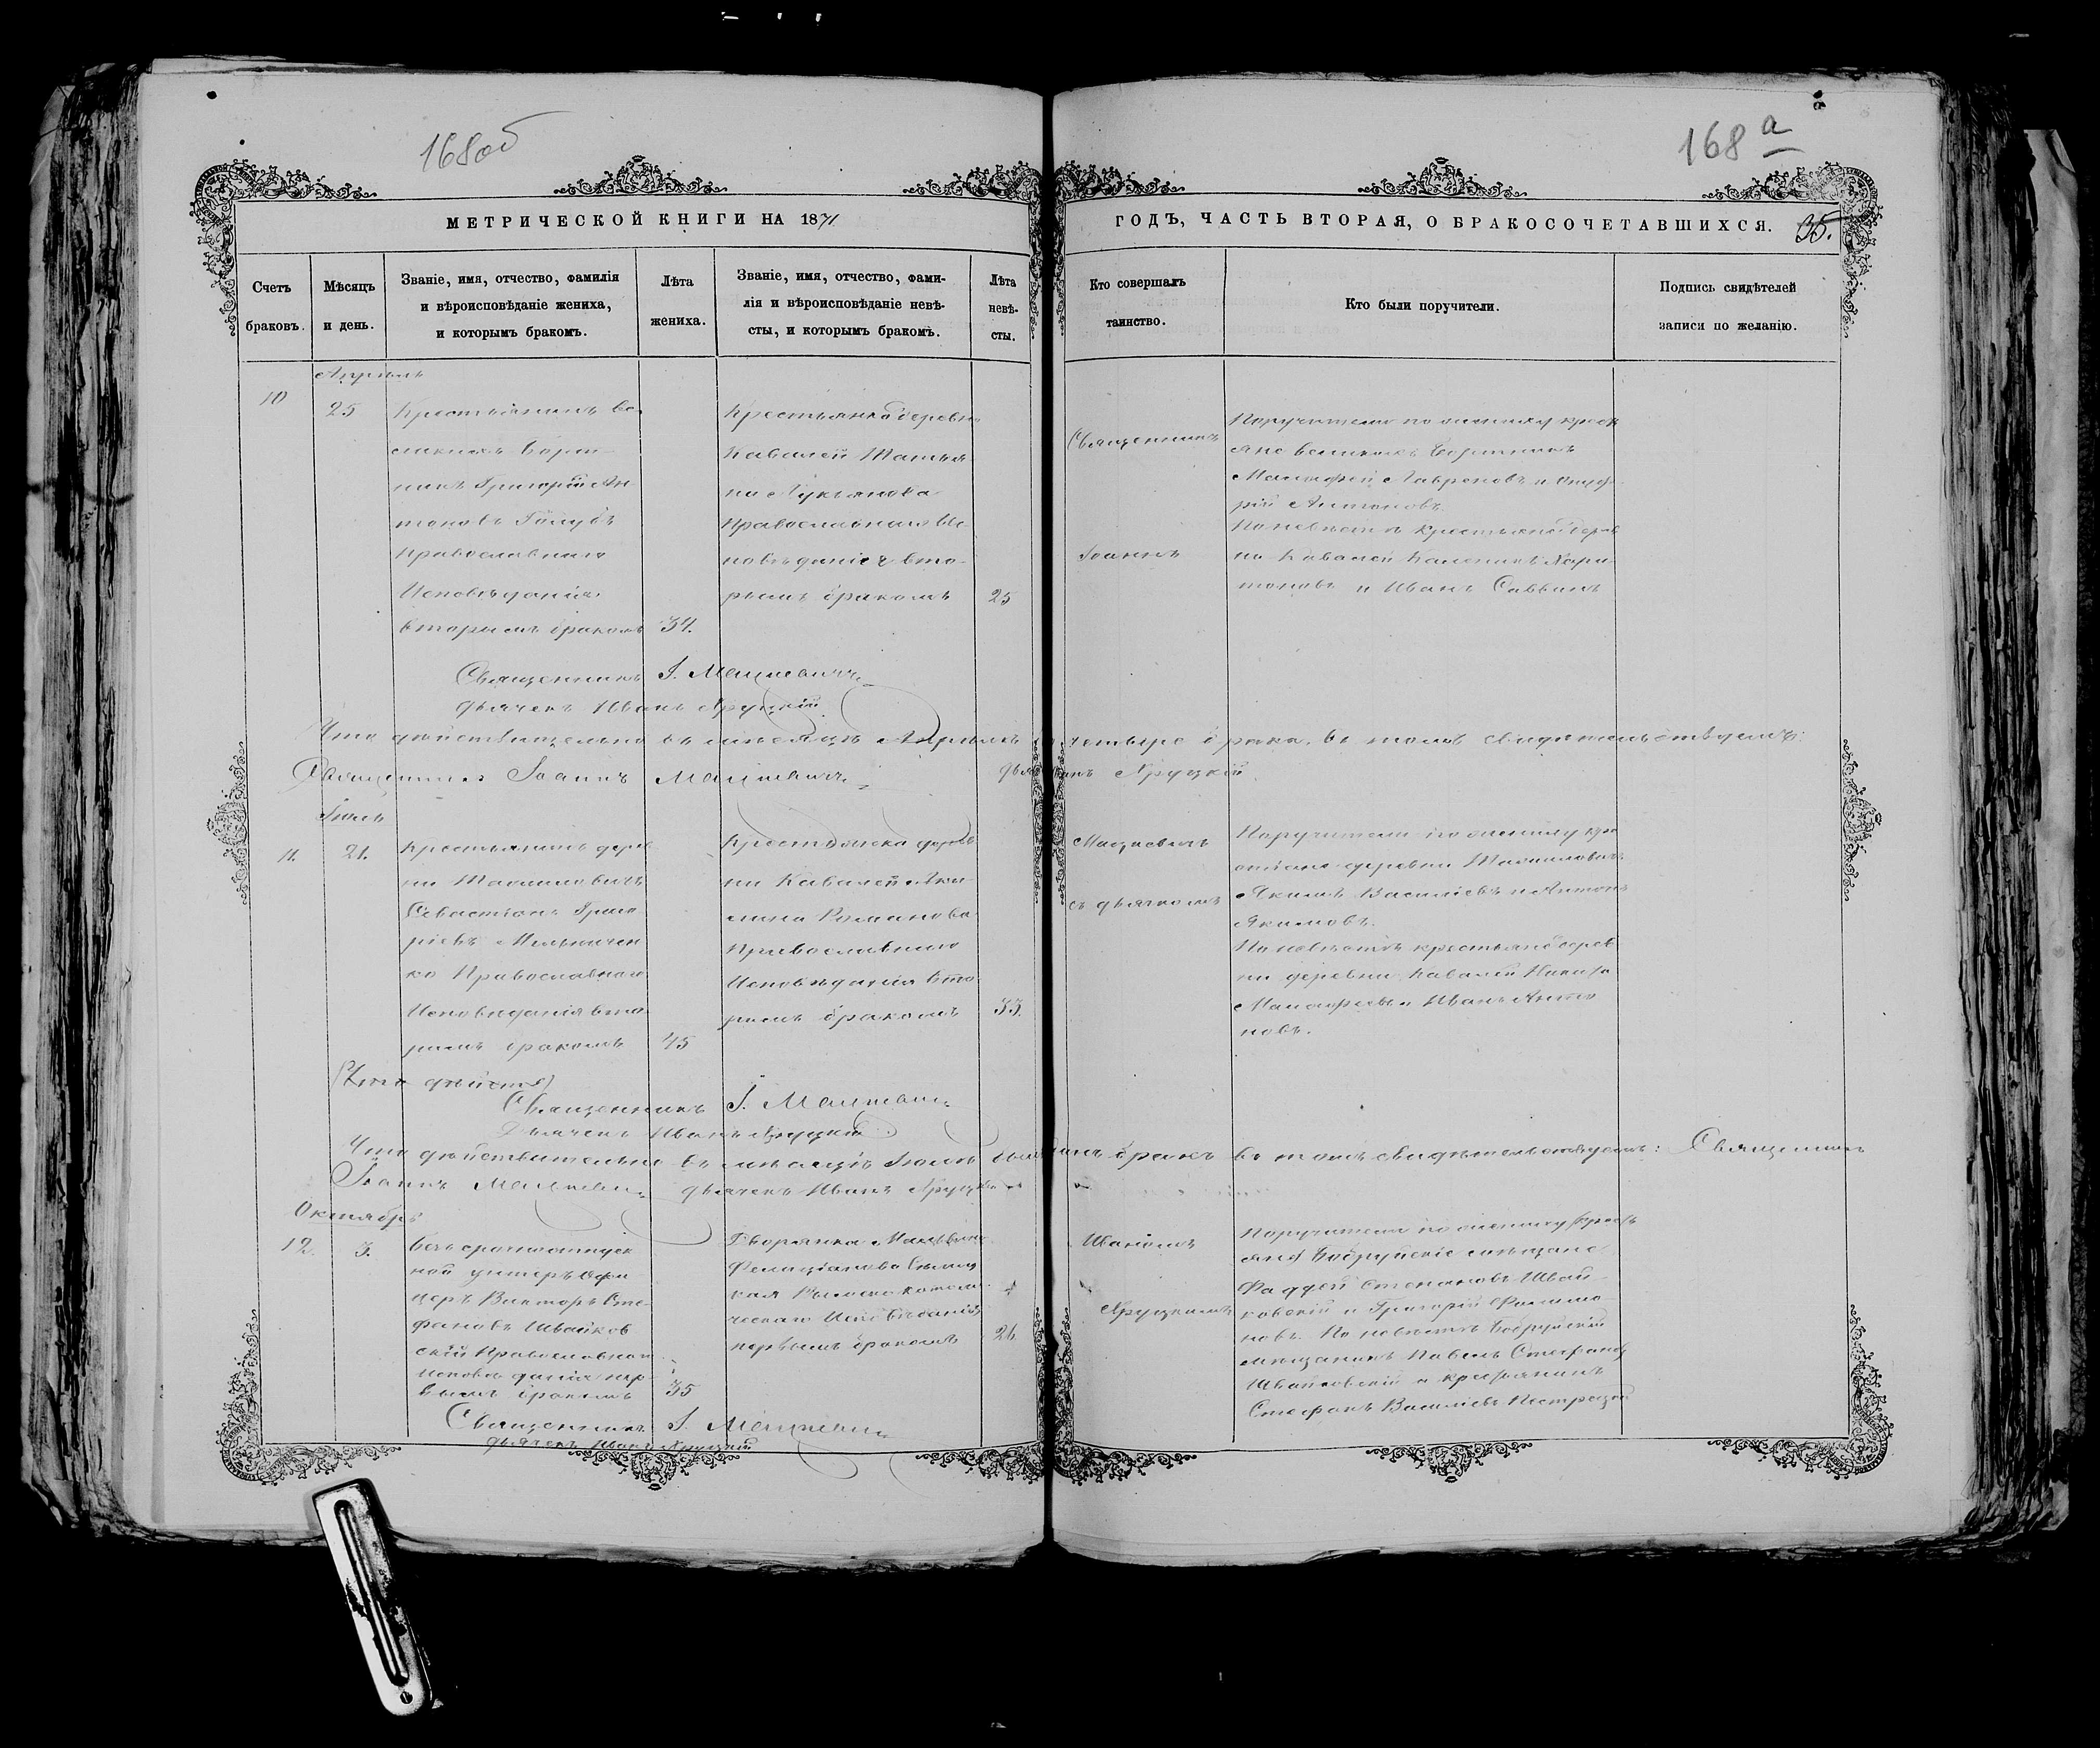 168об
168 а
МЕТРИЧЕСКОЙ КНИГИ НА 1871
ГОДЪ, ЧАСТЬ ВТОРАЯ, О БРАКОСОЧЕТАВШИХСЯ. 35.
Счетъ браковъ.
Мѣсяцъ и день.
Званіе, имя, отчество, фамилія
и вѣроисповѣданіе жениха,
и которымъ бракомъ.
Лѣта жениха.
Званіе, имя, отчество, фами-
лія и вѣроисповѣданіе невѣ-
сты, и которымъ бракомъ.
Лѣта невѣ-
сты.
Кто совершалъ
таинство.
Кто были поручители.
Подпись свидѣтелей
записи по желанію.
Апрѣль
10
25
Крестьянинъ
Григорій Ан-
тоновъ Голубъ
Православнаго
Исповѣданія
вторымъ бракомъ
34.
Крестьянка деревни
Кавалей Татья
на Лукьянова
Православнаго Ис-
повѣданія вто-
рымъ бракомъ
25
Священникъ
Іоаннъ
Поручители по жениху крест
яне
Матфей Лавреновъ и Онуф
рій Антоновъ.
По невѣстѣ крестьяне дерев
ни Кавалей Каленикъ Хари
тоновъ и Иванъ Саввинъ
Священникъ І. Мацкевичъ
Дьячекъ Иванъ Хруцкій
Что дѣйствительно въ мѣсяцѣ Апрѣлѣ четыре брака, въ томъ свидѣтельствуемъ:
Священникъ Іоаннъ Мацкевичъ дьячекъ Хруцкій
Іюль
11.
21.
Крестьянинъ дерев
ни
Севастіонъ Григо
ріевъ Мельничен
ко Православнаго
Исповѣданія вто
рымъ бракомъ
45
Крестьянка дерев
ни Кавалей Аки
лина Романова
Православнаго
Исповѣданія вто
рымъ бракомъ
33.
Мацкевичъ
съ дьячкомъ
Поручители по жениху кре
стьяне деревни
Якимъ Василіевъ и Антонъ
Якимовъ.
По невѣстѣ крестьяне дерев
ни деревни Кавалей
и Иванъ Анто
новъ.
(Что дѣйств)
Священникъ І. Мацкевичъ
Дьячекъ Иванъ Хруцкій
Что дѣйствительно въ мѣсяцѣ Іюлѣ одинъ бракъ въ томъ свидѣтельствуемъ: Священникъ
Іоаннъ Мацкевичъ дьячекъ Иванъ Хруцкій
Октябрь
12.
3.
Безсрочноотпуск
ной унтеръ Офи
церъ Викторъ Сте-
фановъ Швайков
скій Православнаго
исповѣданія пер
вымъ бракомъ
35
Дворянка
Фелиціанова
Римско католи
ческаго Исповѣданія
первымъ бракомъ
21
Иваномъ
Хруцкимъ
Поручители по жениху (крест
яне) Бобруйскіе мѣщане
Фаддей Степановъ Швай
ковскій и Григорій Филимо
новъ. По невѣстѣ Бобруйскій
мѣщанинъ Павелъ Стефановъ
Швайковскій и крестьянинъ
Стефанъ Василіевъ
Священникъ І. Мацкевичъ
Дьячекъ Иванъ Хруцкій